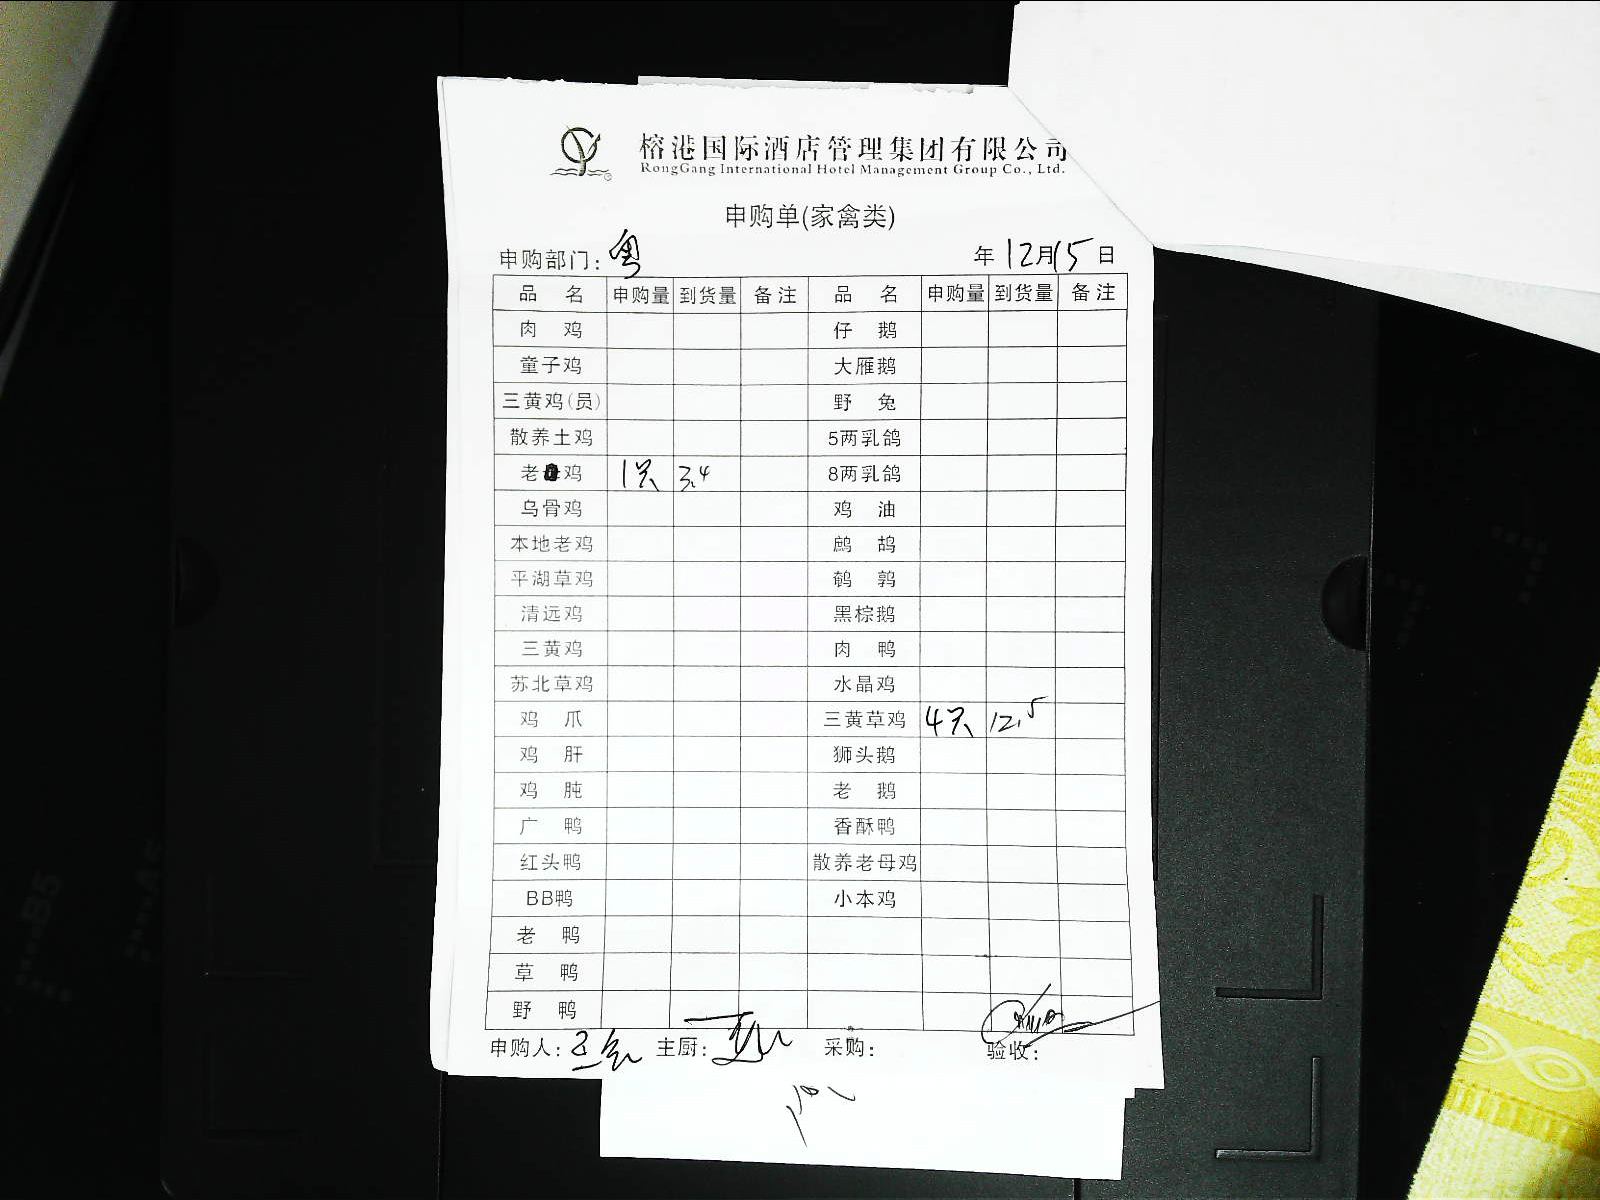 榕港国际酒店管理集团有限公司
RongGang International Hotel Management Group Co., Ltd.
申购单(家禽类)
申购部门: 粤 年 12月15日
品 名 申购量 到货量 备注 品 名 申购量 到货量 备注
肉 鸡 仔 鹅
童子鸡 大雁鹅
三黄鸡(员) 野 兔
散养土鸡 5两乳鸽
老 鸡 1只 3.4 8两乳鸽
乌骨鸡 鸡 油
本地老鸡 鹧 鸪
平湖草鸡 鹌 鹑
清远鸡 黑棕鹅
三黄鸡 肉 鸭
苏北草鸡 水晶鸡
鸡 爪 三黄草鸡 4只 12.5
鸡 肝 狮头鹅
鸡 肫 老 鹅
广 鸭 香酥鸭
红头鸭 散养老母鸡
BB鸭 小本鸡
老 鸭
草 鸭
野 鸭
申购人: 主厨: 采购: 验收: